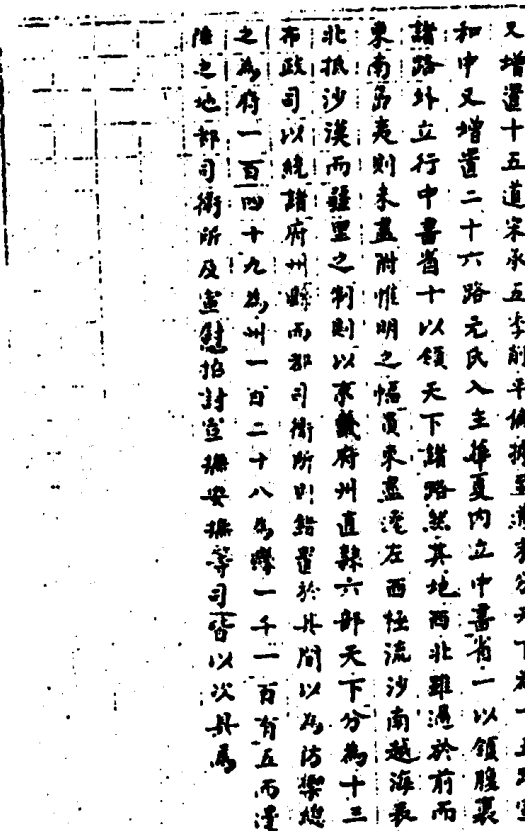 又增置十五道宋承五季削平僭據至
和中又增置二十六路元氏入主華夏內立中書省一以領腹裏
諸路外立行中書省十以領天下諸路然其地西北雖過於前而
東南島夷則未盡附惟明之幅員東盡遼左西極流沙南越海表
北抵沙漠而疆里之制則以京畿府州直隸六部天下分為十三
布政司以統諸府州縣而都司衛所則錯置於其間以為防禦總
之為府一百四十九為州一百二十八為縣一千一百有五而邊
陲之地都司衛所及宣慰招討宣撫安撫等司皆以次具焉